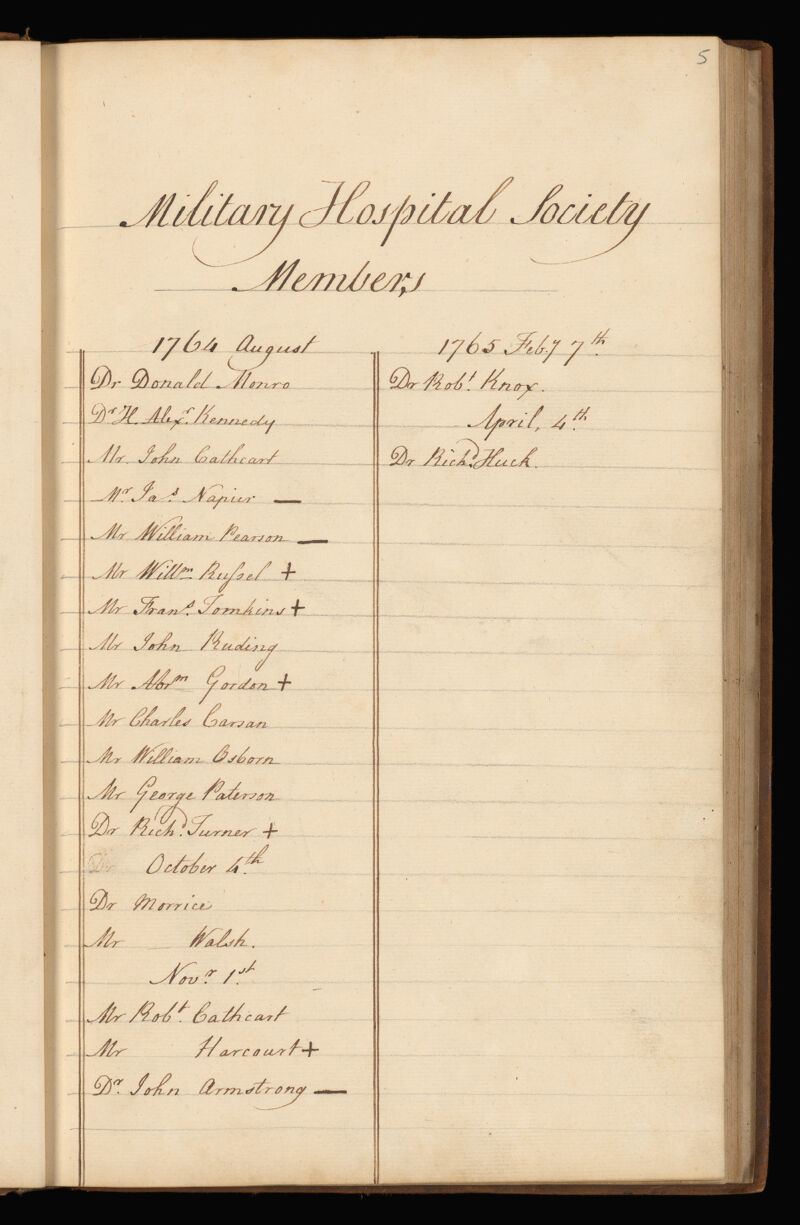 5
Military Hospital Society
Members
1764 August
Dr Donald Monro
Dr H. Alexr. Kennedy
Mr. John Cathcart
Mr. Jas. Napier —
Mr William Pearson —
Mr Willm Russel +
Mr Frans. Tomkins +
Mr John Ruding
Mr Abrm Gordon +
Mr Charles Carsan
Mr William Osborn
Mr George Paterson
Dr Richd. Turner +
October 4th.
Dr Morrice
Mr Walsh.
Novr. 1st.
Mr Robt. Cathcart
Mr Harcourt +
Dr. John Armstrong —
1765 Feby 7th.
Dr Robt. Knox.
April, 4th.
Dr Richd. Huck.